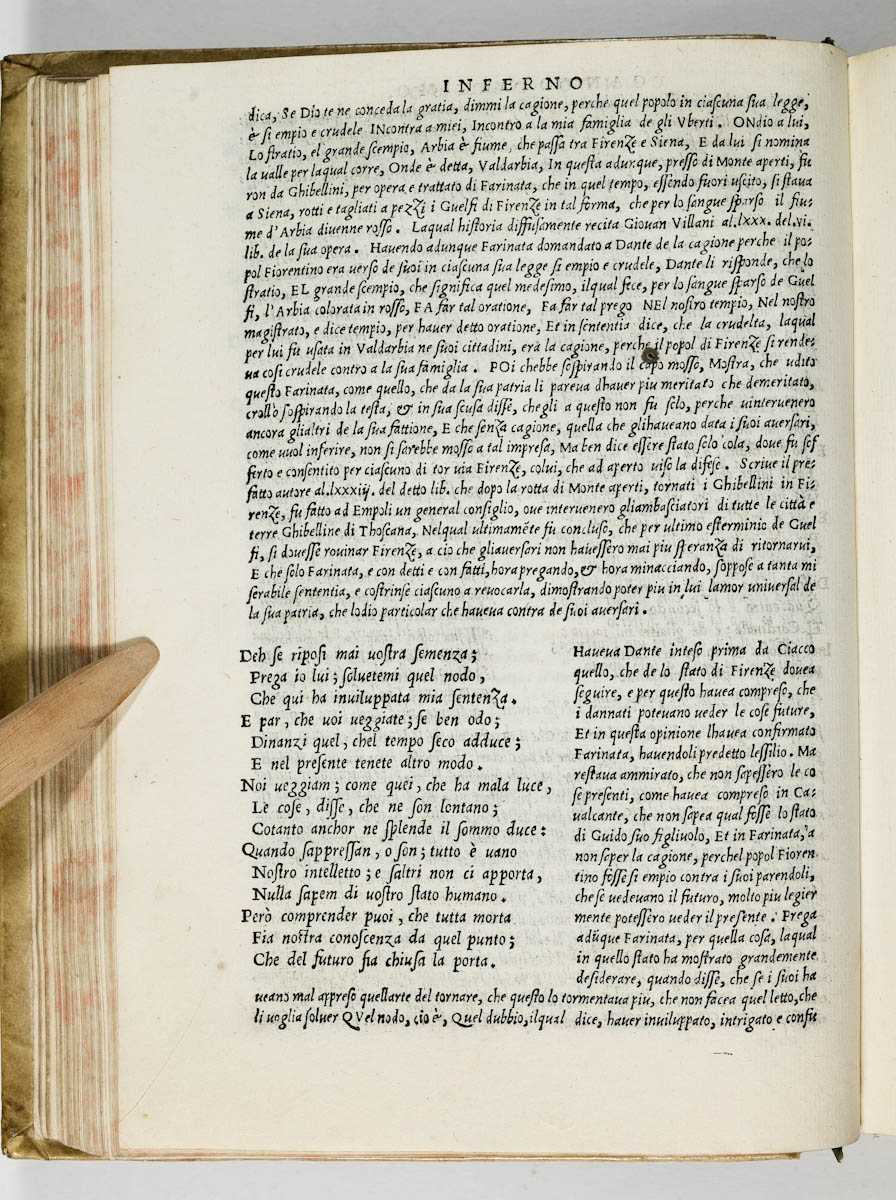 INFERNO
dica, Se Dio te ne conceda la gratia, dimmi la cagione, perche quel popolo in ciascuna sua legge,
è si empio e crudele INcontra a miei, Incontro a la mia famiglia de gli Vberti. ONdio a lui,
Lo stratio, el grande scempio, Arbia è fiume, che passa tra Firenze e Siena, E da lui si nomina
la ualle per laqual corre, Onde è detta, Valdarbia, In questa adunque, presso di Monte aperti, fu
ron da Ghibellini, per opera e trattato di Farinata, che in quel tempo, essendo fuori uscito, si staua
a Siena, rotti e tagliati a pezzi i Guelfi di Firenze in tal forma, che per lo sangue sparso il fiu-
me d'Arbia diuenne rosso. Laqual historia diffusamente recita Giouan Villani al.lxxx. del.vi.
lib. de la sua opera. Hauendo adunque Farinata domandato a Dante de la cagione perche il po-
pol Fiorentino era uerso de suoi in ciascuna sua legge si empio e crudele, Dante li risponde, che lo
stratio, EL grande scempio, che significa quel medesimo, ilqual fece, per lo sangue sparso de Guel
fi, l'Arbia colorata in rosso, FA far tal oratione, Fa far tal prego NEl nostro tempio, Nel nostro
magistrato, e dice tempio, per hauer detto oratione, Et in sententia dice, che la crudelta, laqual
per lui fu usata in Valdarbia ne suoi cittadini, era la cagione, perche il popol di Firenze si rende-
ua cosi crudele contro a la sua famiglia. POi chebbe sospirando il capo mosso, Mostra, che udito
questo Farinata, come quello, che da la sua patria li pareua dhauer piu meritato che demeritato,
crollo sospirando la testa, & in sua scusa disse, chegli a questo non fu solo, perche uinteruenero
ancora glialtri de la sua fattione, E che senza cagione, quella che glihaueano data i suoi auersari,
come uuol inferire, non si sarebbe mosso a tal impresa, Ma ben dice essere stato solo cola, doue fu sof
ferto e consentito per ciascuno di tor uia Firenze, colui, che ad aperto uiso la difese. Scriue il pre-
fatto autore al.lxxxiij. del detto lib. che dopo la rotta di Monte aperti, tornati i Ghibellini in Fi-
renze, fu fatto ad Empoli un general consiglio, oue interuenero gliambasciatori di tutte le città e
terre Ghibelline di Thoscana, Nelqual ultimamēte fu concluso, che per ultimo esterminio de Guel
fi, si douesse rouinar Firenze, a cio che gliauersari non hauessero mai piu speranza di ritornarui,
E che solo Farinata, e con detti e con fatti, hora pregando, & hora minacciando, soppose a tanta mi
serabile sententia, e costrinse ciascuno a reuocarla, dimostrando poter piu in lui lamor uniuersal de
la sua patria, che lodio particolar che haueua contra de suoi auersari.
Deh se riposi mai uostra semenza;
Prega io lui; soluetemi quel nodo,
Che qui ha inuiluppata mia sentenza.
E par, che uoi ueggiate; se ben odo;
Dinanzi quel, chel tempo seco adduce;
E nel presente tenete altro modo.
Noi ueggiam; come quei, che ha mala luce,
Le cose, disse, che ne son lontano;
Cotanto anchor ne splende il sommo duce:
Quando sappressan, o son; tutto è uano
Nostro intelletto; e saltri non ci apporta,
Nulla sapem di uostro stato humano.
Però comprender puoi, che tutta morta
Fia nostra conoscenza da quel punto;
Che del futuro fia chiusa la porta.
Haueua Dante inteso prima da Ciacco
quello, che de lo stato di Firenze douea
seguire, e per questo hauea compreso, che
i dannati poteuano ueder le cose future,
Et in questa opinione lhauea confirmato
Farinata, hauendoli predetto lessilio. Ma
restaua ammirato, che non sapessero le co
se presenti, come hauea compreso in Ca-
ualcante, che non sapea qual fosse lo stato
di Guido suo figliuolo, Et in Farinata, a
non saper la cagione, perchel popol Fioren
tino fosse si empio contra i suoi parendoli,
che se uedeuano il futuro, molto piu legier
mente potessero ueder il presente. Prega
adūque Farinata, per quella cosa, laqual
in quello stato ha mostrato grandemente
desiderare, quando disse, che se i suoi ha
ueano mal appreso quellarte del tornare, che questo lo tormentaua piu, che non facea quel letto, che
li uoglia soluer QVel nodo, cio è, Quel dubbio, ilqual dice, hauer inuiluppato, intrigato e confu